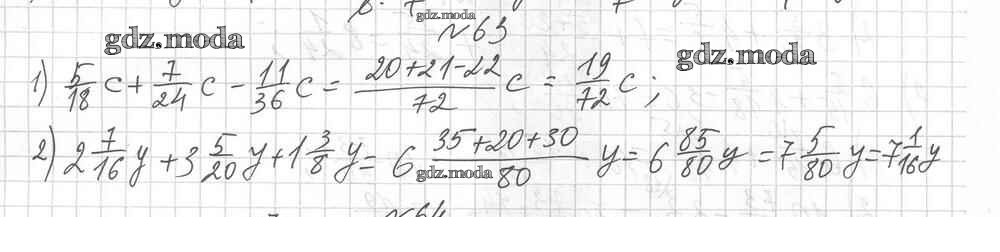 gdz.moda
№63
gdz.moda
gdz.moda
1) 5/18 c + 7/24 c - 11/36 c = (20+21-22)/72 c = 19/72 c;
2) 2 7/16 y + 3 5/20 y + 1 3/8 y = 6 (35+20+30)/80 y = 6 85/80 y = 7 5/80 y = 7 1/16 y
gdz.moda
№64